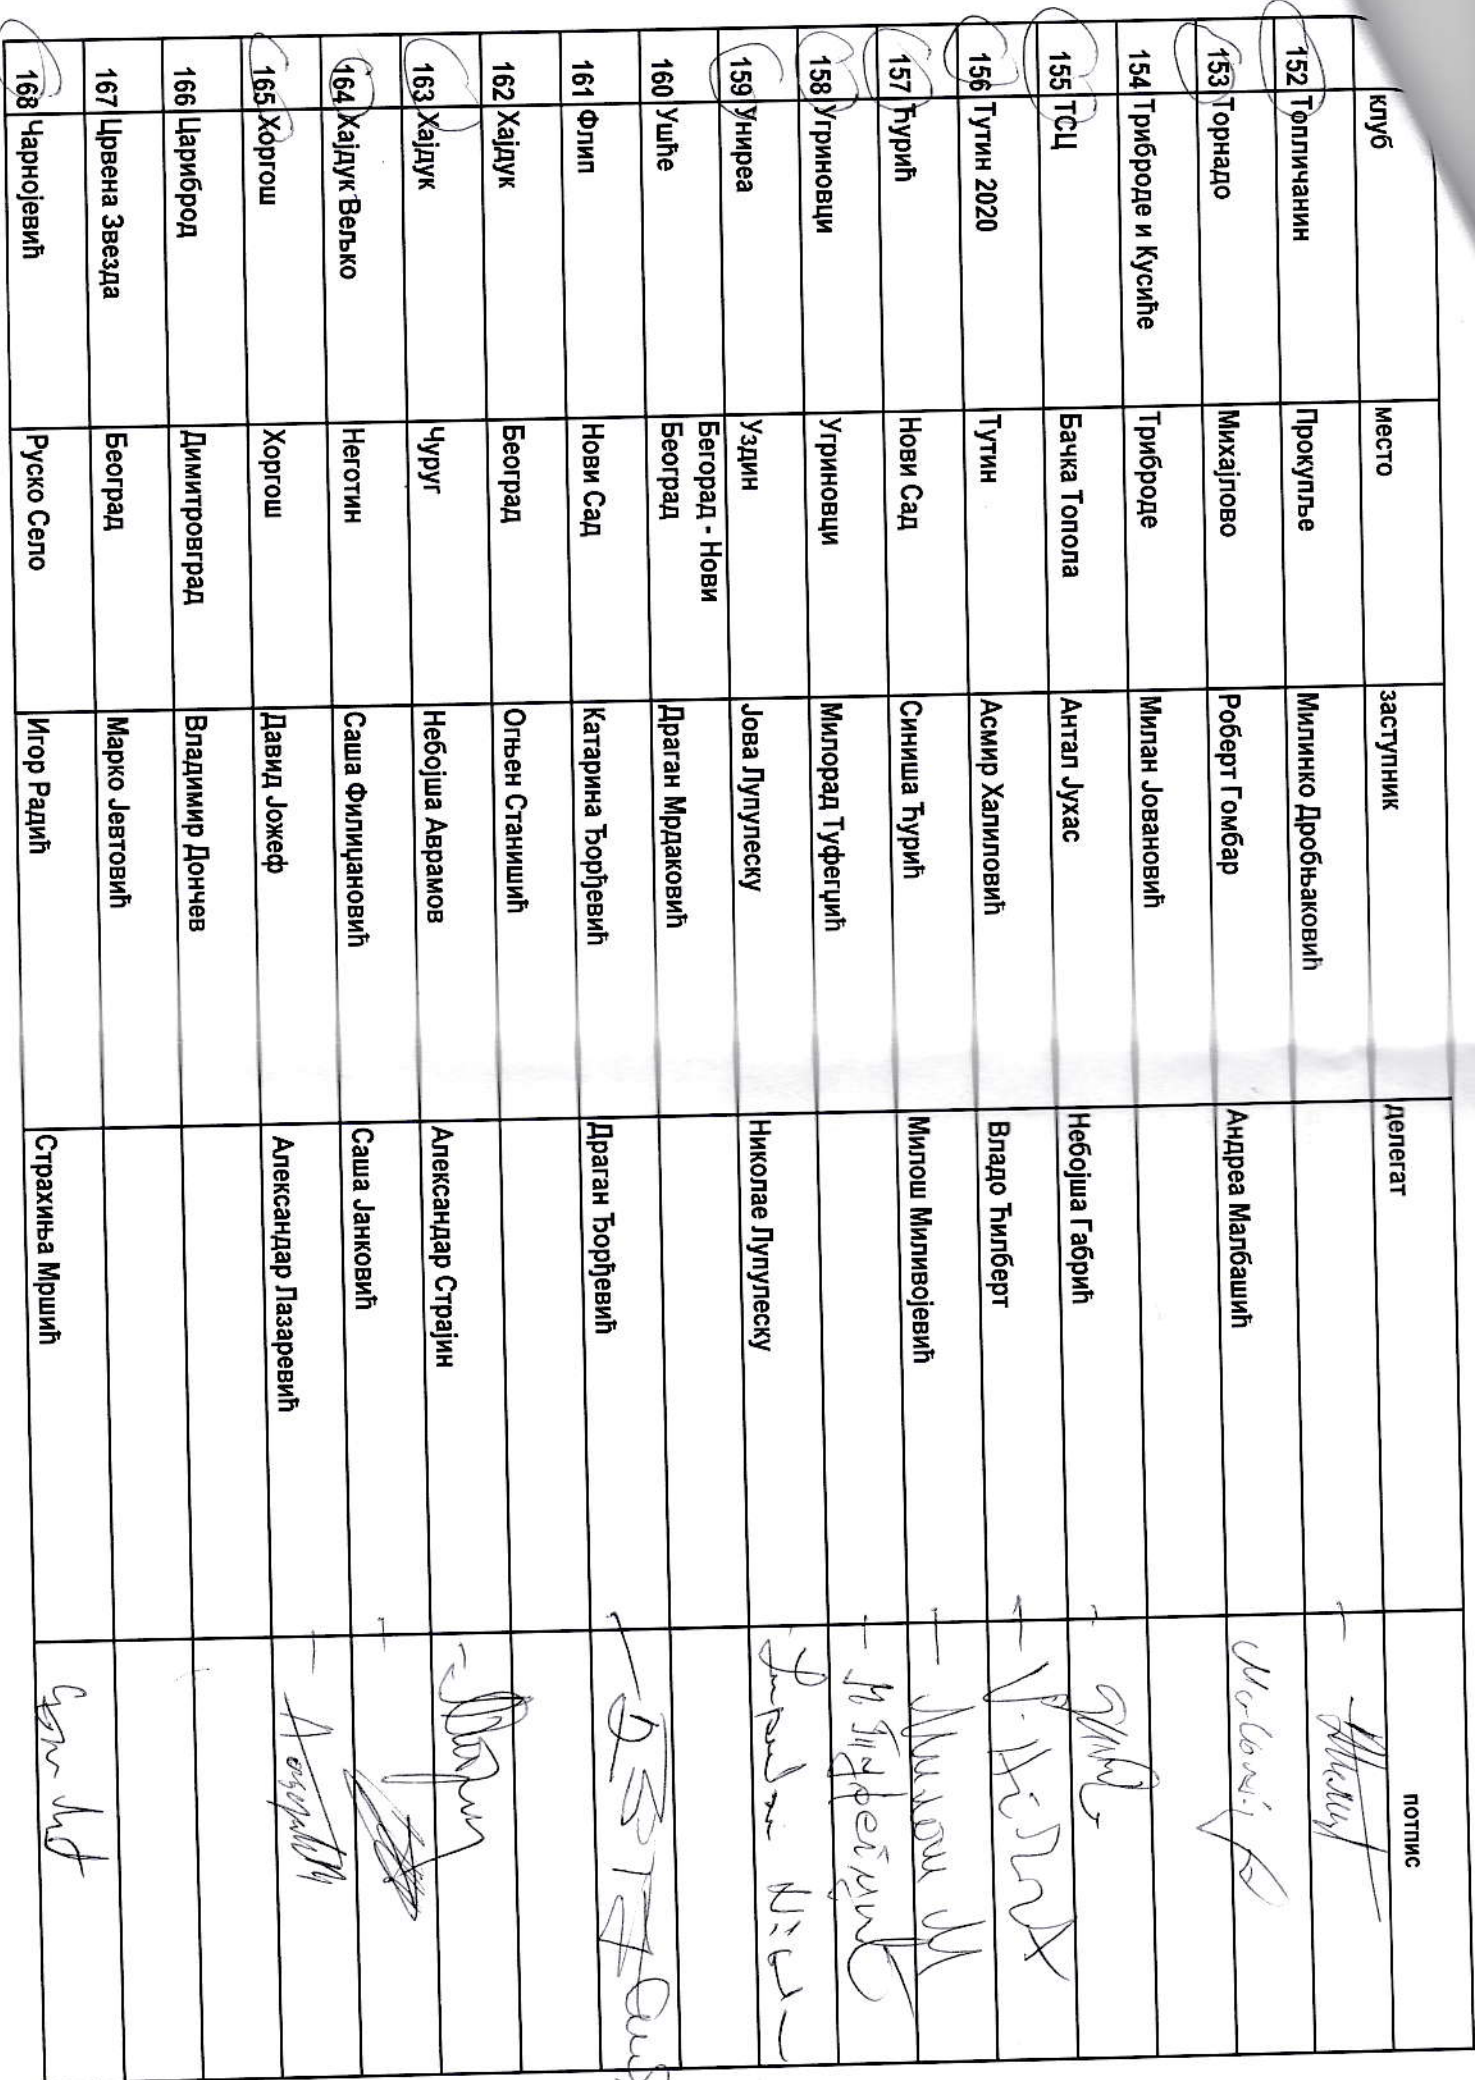 клуб место заступник делегат потпис
152 Топличанин Прокупље Милинко Дробњаковић
153 Торнадо Михајлово Роберт Гомбар Андреа Малбашић
154 Триброде и Кусиће Триброде Милан Јовановић
155 ТСЦ Бачка Топола Антал Јухас Небојша Габрић
156 Тутин 2020 Тутин Асмир Халиловић Владо Ћилберт
157 Ћурић Нови Сад Синиша Ћурић Милош Миливојевић
158 Угриновци Угриновци Милорад Туфегџић
159 Униреа Уздин Јова Лупулеску Николае Лупулеску
160 Ушће Бегорад - Нови Београд Драган Мрдаковић
161 Флип Нови Сад Катарина Ђорђевић Драган Ђорђевић
162 Хајдук Београд Огњен Станишић
163 Хајдук Чуруг Небојша Аврамов Александар Страјин
164 Хајдук Вељко Неготин Саша Филицановић Саша Јанковић
165 Хоргош Хоргош Давид Јожеф Александар Лазаревић
166 Цариброд Димитровград Владимир Дончев
167 Црвена Звезда Београд Марко Јевтовић
168 Чарнојевић Руско Село Игор Радић Страхиња Мршић